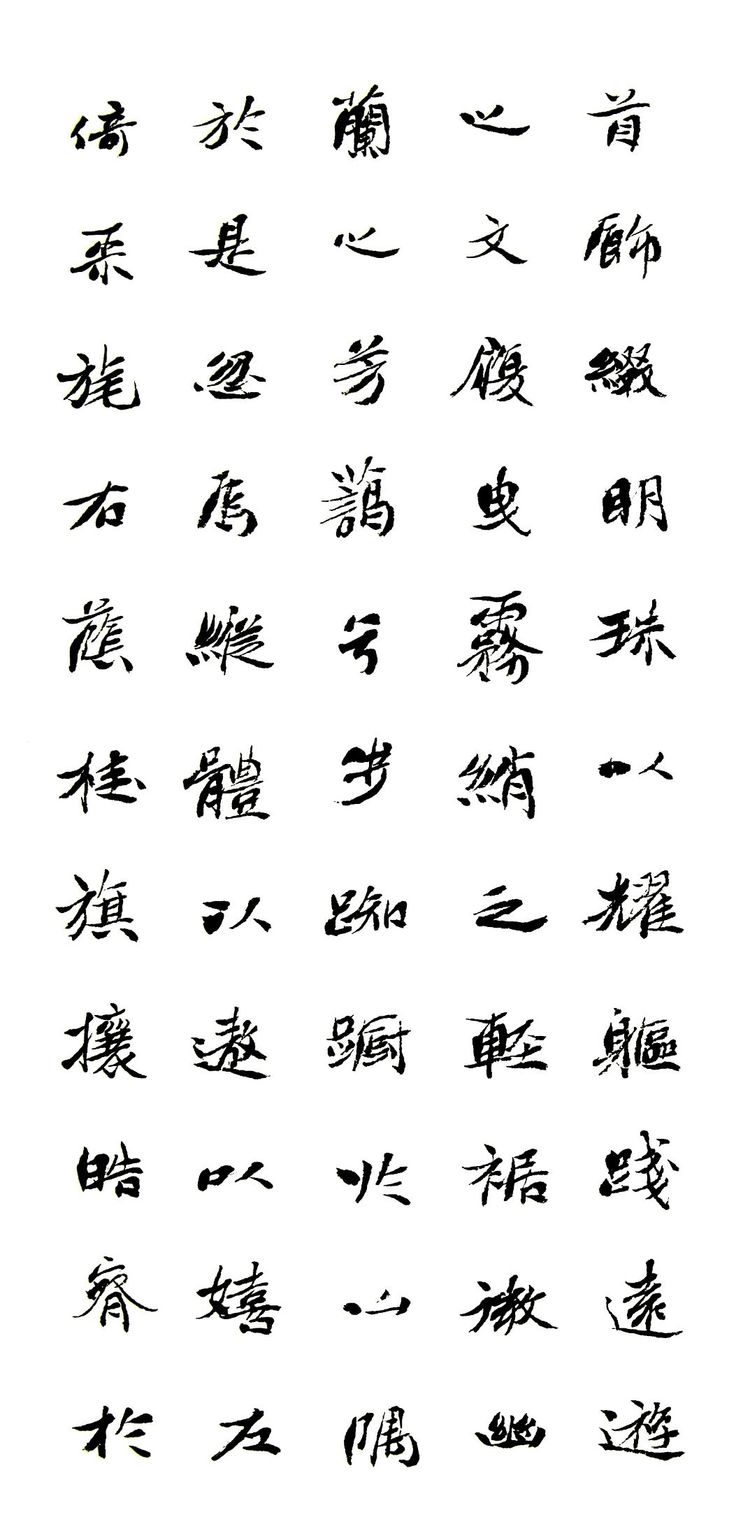 首飾綴明珠以耀軀踐遠遊
之文履曳霧綃之輕裾微幽
蘭之芳藹兮步踟躕於山隅
於是忽焉縱體以遨以嬉左
倚采旄右蔭桂旗攘皓腕於